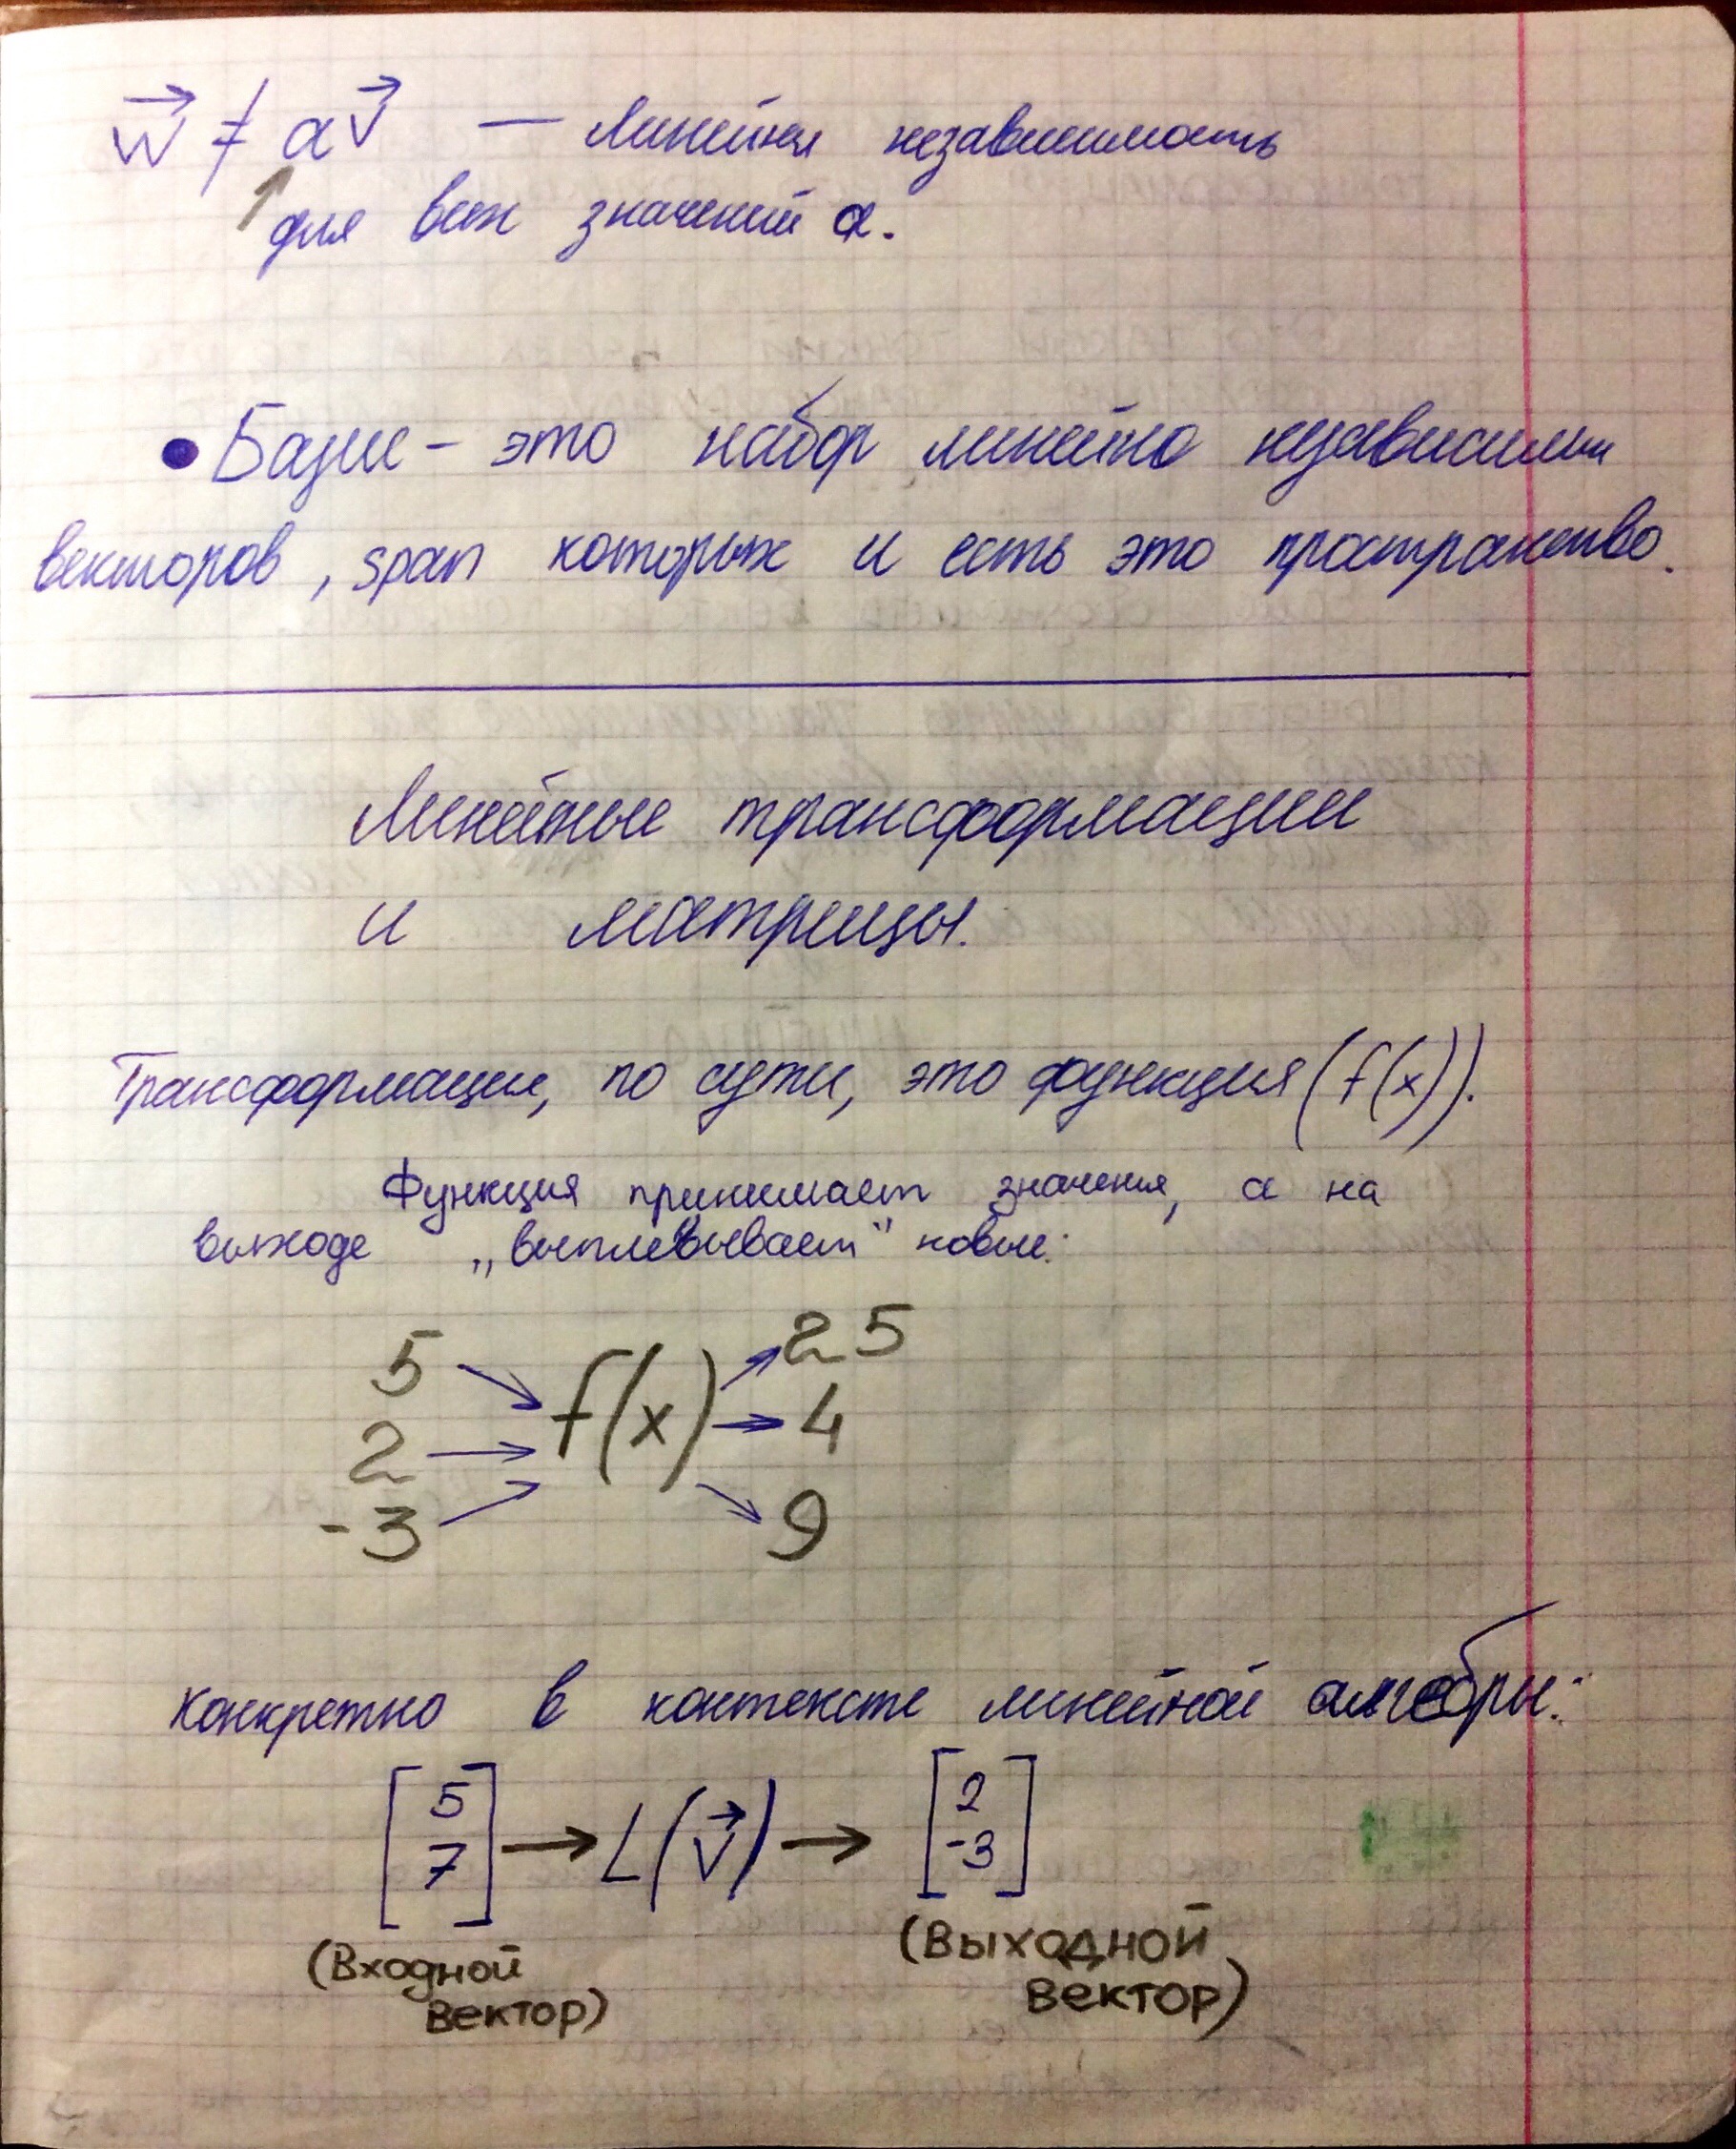 w⃗ ≠ av⃗ — линейная независимость
для всех значений a.
• Базис - это набор линейно независимых
векторов, span которых и есть это пространство.
Линейные трансформации
и матрицы.
Трансформация, по сути, это функция (f(x)).
Функция принимает значения, а на
выходе „выплевывает" новые:
5 → f(x) → 25
2 → f(x) → 4
-3 → f(x) → 9
конкретно в контексте линейной алгебры:
[5 7] → L(v⃗) → [2 -3]
(Входной вектор)
(Выходной вектор)